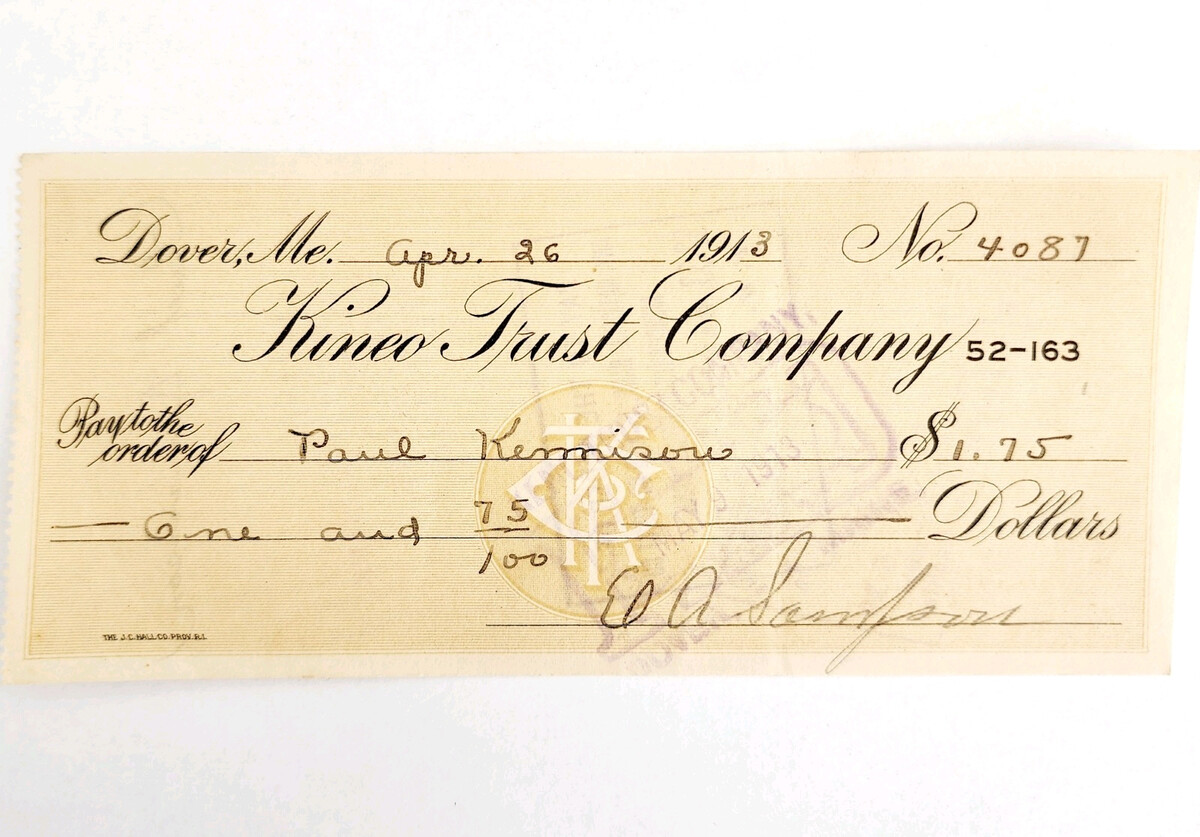 Dover, Me. Apr. 26 1913 No. 4087
Kineo Trust Company 52-163
Pay to the order of Paul Kennison $1.75
One and 75/100 Dollars
MAY 9 1913
E A Sampson
THE J.C. HALL CO. PROV. R.I.